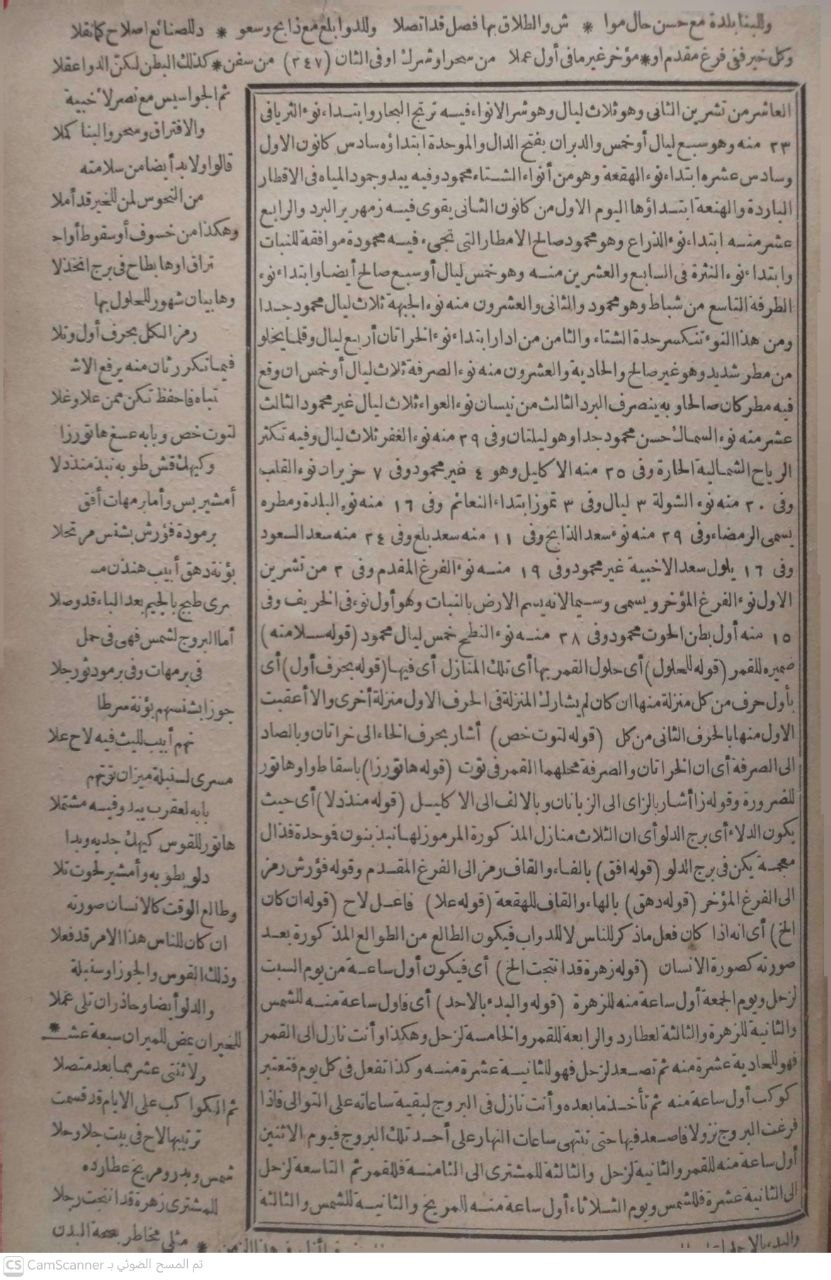 وللبنا بلدة مع حسن حال موا * ش والطلاق بها فصل قد اتصلا وللدوا بلغ مع ذابح وسعو * د للصنائع اصلاح كما نقلا
وكل خير ففى فرغ مقدم او * مؤخر غير ما فى أول عملا من سحر او شرك او فى الثان (٣٤٧) من سفن * كذلك البطن لكن الدوا عقلا
ثم الجواسيس مع نصر لاخبية
والافتراق وسحر والبنا كملا
قالوا ولا بد أيضا من سلامته
من النحوس لمن للخير قد أملا
وهكذا من خسوف أو سقوط أواحـ
تراق اوها بطا فى برج اتخذلا
وها بيان شهور للحلول بها
رمز الكل بحرف أول وتلا
فيما تكرر ثان منه يرفع الاشـ
تباه فاحفظ تكن ممن علا وغلا
لتوت خص وبابه عسغ هاتور زا
وكيهك قش طوبه تبذ منذ دلا
أمشير بس وأما برمهات أفق
برمودة فؤرش بشنس مرتحلا
بؤنة دهق أبيب هنذن مسـ
مرى طبج بالجيم بعد الباء قد وصلا
أما البروج لشمس فهى فى حمل
فى برمهات وفى برمود ثور جلا
جوزا بشنسهم بؤنة سرطا
نهم أبيب لليث فيه لاح علا
مسرى لسنبلة ميزان توتهم
بابه لعقرب يبدو فيه مشتملا
هاتور للقوس كيهك جديه وبدا
دلو بطوبه وأمشير لحوت تلا
وطالع الوقت كالانسان صورته
ان كان للناس هذا الامر قد فعلا
وذلك القوس والجوزا وسنبلة
والدلو أيضا وحاذر ان تلى عملا
للنيران عض للميران سبعة عشـ *
ر لا ثنتى عشر مما بعد متصلا
ثم الكواكب على الايام قد قسمت
ترتيبها لاح فى بيت جلا وحلا
شمس وبدر ومريخ عطارده
للمشترى زهرة قد انتجت رجلا
العاشر من تشرين الثانى وهو ثلاث ليال وهو شر الانواء فيه ترتج البحار وابتداء نوء الثريا فى
٢٣ منه وهو سبع ليال أو خمس والدبران بفتح الدال والموحدة ابتداؤه سادس كانون الاول
وسادس عشره ابتداء نوء الهقعة وهو من أنواء الشتاء محمود وفيه يبدو جمود المياه فى الاقطار
الباردة والهنعة ابتداؤها اليوم الاول من كانون الثانى يقوى فيه زمهرير البرد والرابع
عشر منه ابتداء نوء الذراع وهو محمود صالح الامطار التى تجىء فيه محمودة موافقة للنبات
وابتداء نوء النثرة فى السابع والعشرين منه وهو خمس ليال أو سبع صالح أيضا وابتداء نوء
الطرفة التاسع من شباط وهو محمود والثانى والعشرون منه نوء الجبهة ثلاث ليال محمود جدا
ومن هذا النوء تنكسر حدة الشتاء والثامن من ادار ابتداء نوء الخراتان أربع ليال وقلما يخلو
من مطر شديد وهو غير صالح والحادية والعشرون منه نوء الصرفة ثلاث ليال أو خمس ان وقع
فيه مطر كان صالحا وبه ينصرف البرد الثالث من نيسان نوء العواء ثلاث ليال غير محمود الثالث
عشر منه نوء السماك حسن محمود جدا وهو ليلتان وفى ٢٩ منه نوء الغفر ثلاث ليال وفيه تكثر
الرياح الشمالية الحارة وفى ٢٥ منه الاكليل وهو ٤ غير محمود وفى ٧ حزيران نوء القلب
وفى ٢٠ منه نوء الشولة ٣ ليال وفى ٣ تموز ابتداء النعائم وفى ١٦ منه نوء البلدة ومطره
يسمى الرمضاء وفى ٢٩ منه نوء سعد الذابح وفى ١١ منه سعد بلع وفى ٢٤ منه سعد السعود
وفى ١٦ يلول سعد الاخبية غير محمود وفى ١٩ منه نوء الفرغ المقدم وفى ٢ من تشرين
الاول نوء الفرغ المؤخر ويسمى وسميا لانه يسم الارض بالنبات وهو أول نوء فى الخريف وفى
١٥ منه أول بطن الحوت محمود وفى ٢٨ منه نوء النطح خمس ليال محمود (قوله سلامته)
ضميره للقمر (قوله للحلول) أى حلول القمر بها أى تلك المنازل أى فيها (قوله بحرف أول) أى
بأول حرف من كل منزلة منها ان كان لم يشارك المنزلة فى الحرف الاول منزلة أخرى والا أعقبت
الاول منها بالحرف الثانى من كل (قوله لتوت خص) أشار بحرف الخاء الى خراتان وبالصاد
الى الصرفة أى ان الخراتان والصرفة محلهما القمر فى توت (قوله هاتور زا) باسقاط واو هاتور
للضرورة وقوله زا أشار بالزاى الى الزبانان وبالالف الى الاكليل (قوله منذ دلا) أى حيث
يكون الدلاء أى برج الدلو أى ان الثلاث منازل المذكورة المرموز لها نبذ بنون فوحدة فذال
معجمة يكن فى برج الدلو (قوله افق) بالفاء والقاف رمز الى الفرغ المقدم وقوله فؤرش رمز
الى الفرغ المؤخر (قوله دهق) بالهاء والقاف للهقعة (قوله علا) فاعل لاح (قوله ان كان
الخ) أى انه اذا كان فعل ماذكر للناس لا للدواب فيكون الطالع من الطوالع المذكورة بعد
صورته كصورة الانسان (قوله زهرة قد انتجت الخ) أى فيكون أول ساعة من يوم السبت
لزحل ويوم الجمعة أول ساعة منه للزهرة (قوله والبدء بالاحد) أى فاول ساعة منه للشمس
والثانية للزهرة والثالثة لعطارد والرابعة للقمر والخامسة لزحل وهكذا وأنت نازل الى القمر
فهو للحادية عشرة منه ثم تصعد لزحل فهو للثانية عشرة منه وكذا تفعل فى كل يوم فتعتبر
كوكب أول ساعة منه ثم تأخذ ما بعده وأنت نازل فى البروج لبقية ساعاته على التوالى فاذا
فرغت البروج نزولا فاصعد فيها حتى تنتهى ساعات النهار على أحد تلك البروج فيوم الاثنين
أول ساعة منه للقمر والثانية لزحل والثالثة للمشترى الى الثامنة فللقمر ثم التاسعة لزحل
الى الثانية عشرة فللشمس ويوم الثلاثاء أول ساعة منه للمريخ والثانية للشمس والثالثة
والبدء بالاحد
مثلى مخاطر بصحة البدن
CS CamScanner تم المسح الضوئي بـ